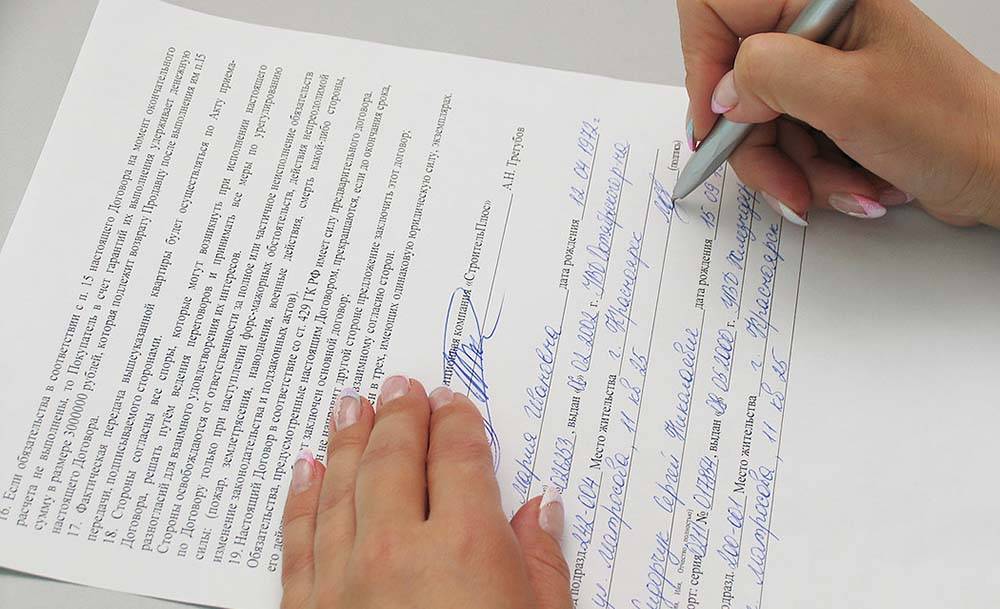 16. Если обязательства в соответствии с п. 15 настоящего Договора на момент окончательного
расчета не выполнены, то Покупатель в счет гарантий их выполнения удерживает денежную
сумму в размере 3000000 рублей, которая подлежит возврату Продавцу после выполнения им п.15
настоящего Договора.
17. Фактическая передача вышеуказанной квартиры будет осуществляться по Акту приема-
передачи, подписываемого сторонами.
18. Стороны согласны все споры, которые могут возникнуть при исполнении настоящего
Договора, решать путём ведения переговоров и принимать все меры по урегулированию
разногласий для взаимного удовлетворения их интересов.
Стороны освобождаются от ответственности за полное или частичное неисполнение обязательств
по Договору только при наступлении форс-мажорных обстоятельств, действия непреодолимой
силы: (пожар, землетрясения, наводнения, военные действия, смерть какой-либо стороны,
изменение законодательства и подзаконных актов).
19. Настоящий Договор в соответствие со ст. 429 ГК РФ имеет силу предварительного договора.
Обязательства, предусмотренные настоящим Договором, прекращаются, если до окончания срока,
его дей заключен основной договор,
другой стороне предложение заключить этот договор;
взаимному согласию сторон.
в трех, имеющих одинаковую юридическую силу, экземплярах.
компания «СтроительПлюс»
А.Н. Трегубов
Мария Ивановна дата рождения 12 04 1972 г
выдан 06 02 2002 г. УВД
подразд. 242-004 Место жительства г Красноярск
Матросова, 11 кв 25
(подпись)
Сергей Николаевич дата рождения 15 09
Отчество, полностью)
серия № выдан 28 03 2000 г. УВД
подразд. 200-001 Место жительства г Красноярск
Матросова, 11 кв 25